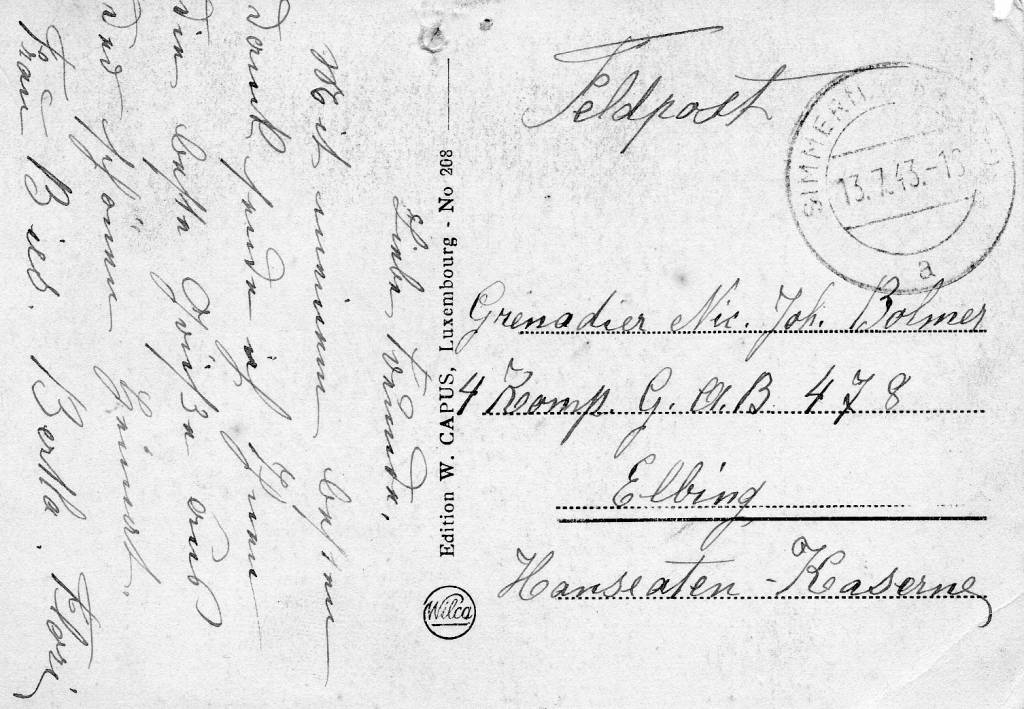 Feldpost
SIMMERN
13.7.43.-18
a
Grenadier Nic. Joh. Bolmer
4 Komp. G. A.B 478
Elbing
Hanseaten-Kaserne
Edition W. CAPUS, Luxembourg - No 208
Wilca
Liebe Freunde,
Mit meinem besten
Dank sende ich Ihnen
die beste Grüße aus
der schönen Heimat.
Frau Bertha.